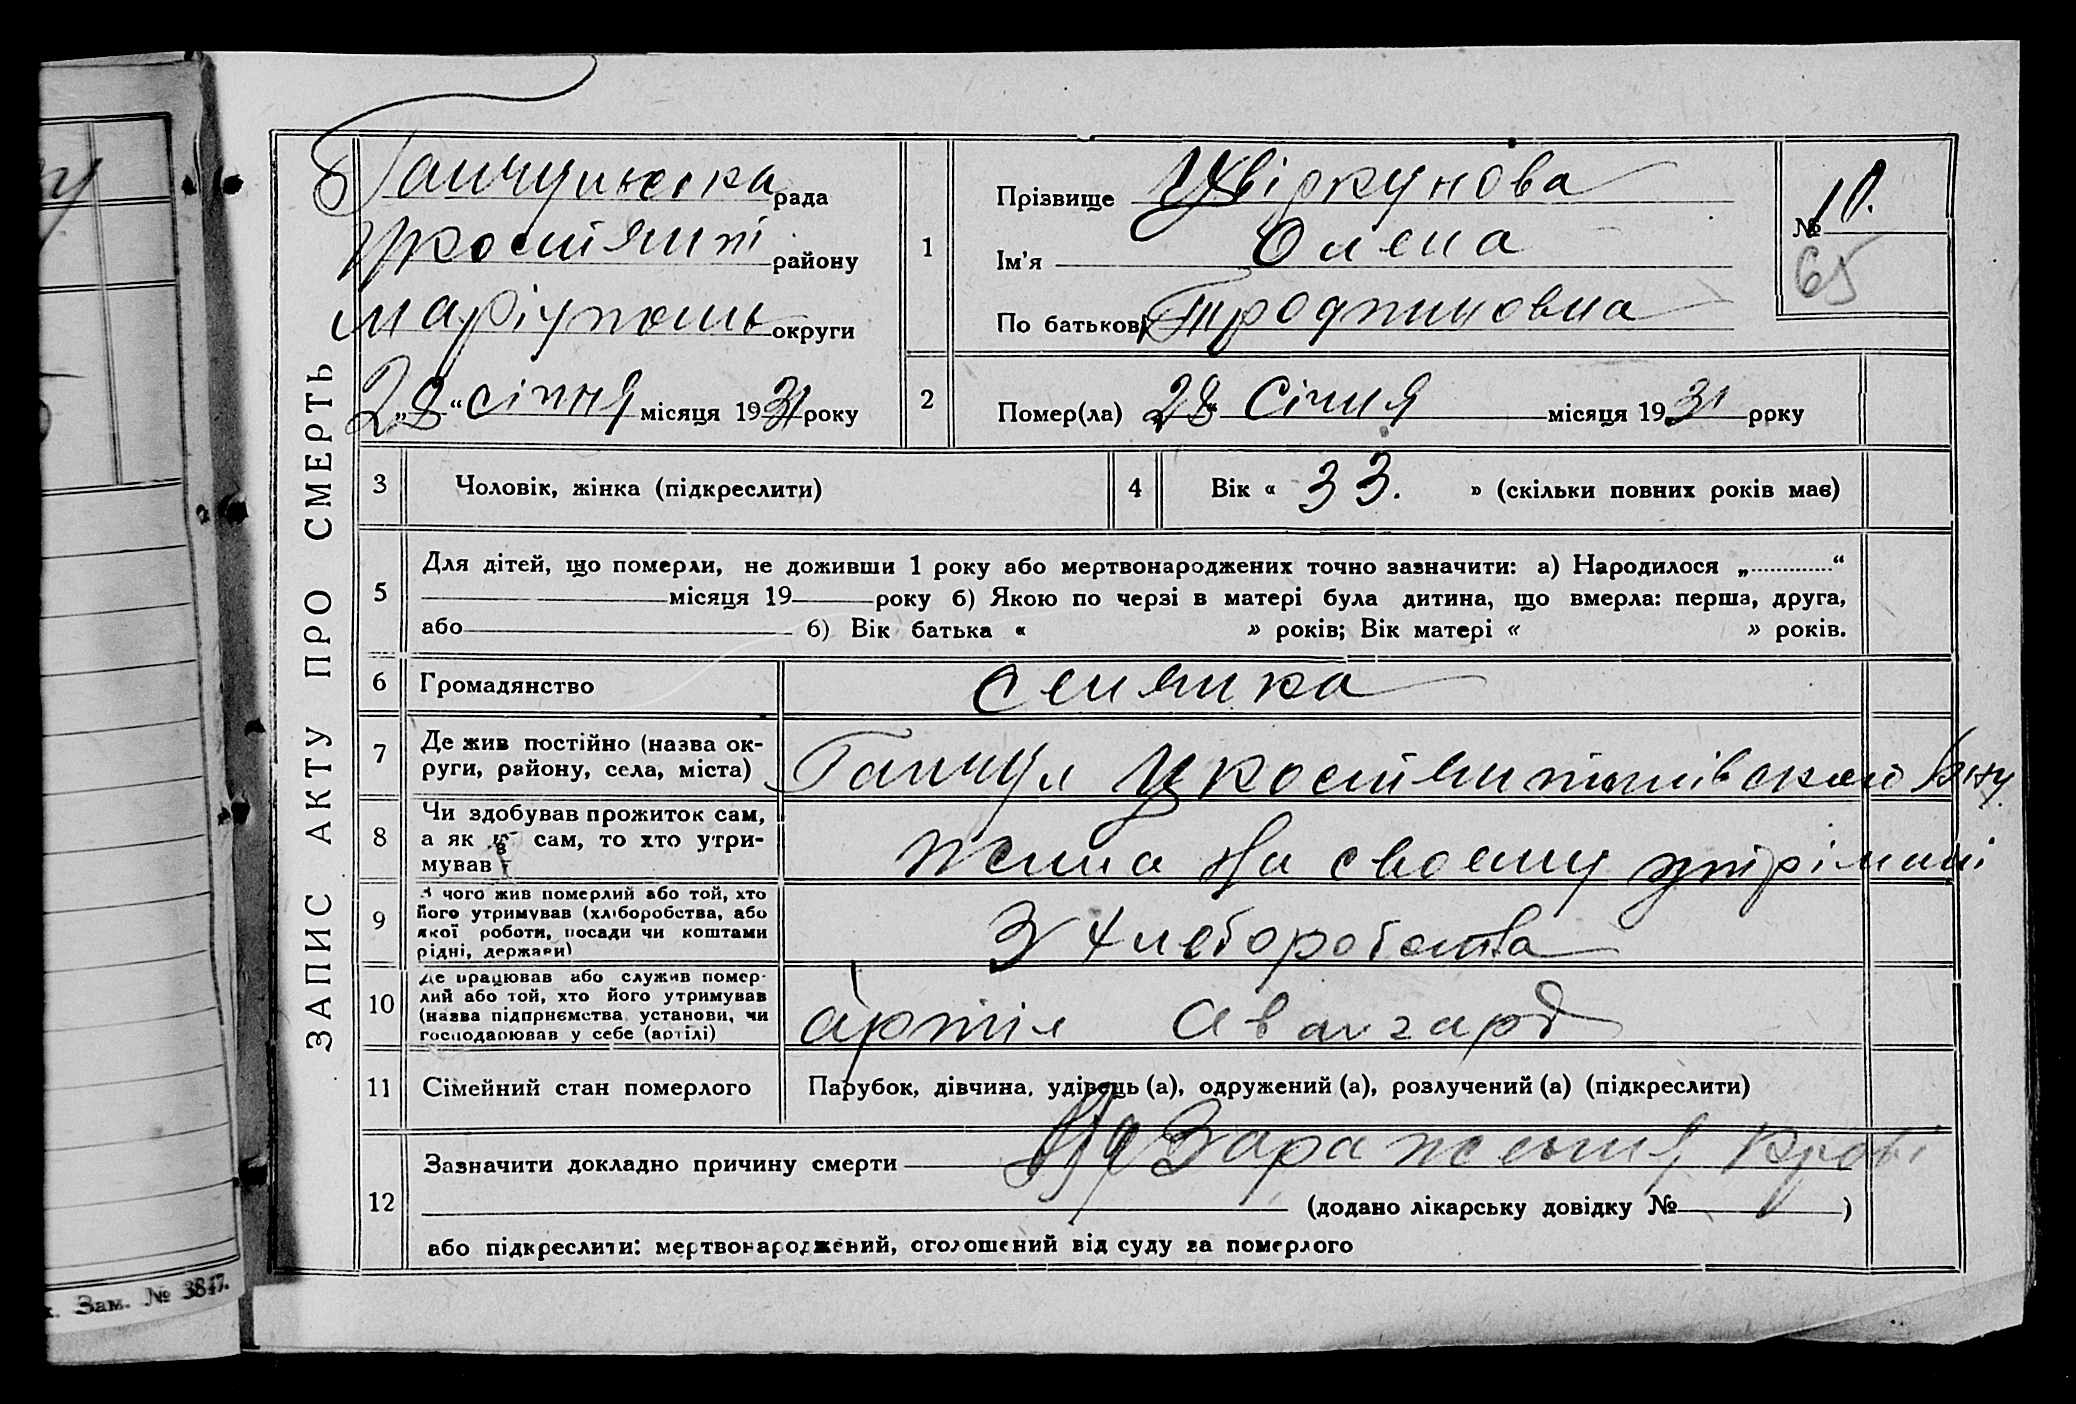 ЗАПИС АКТУ ПРО СМЕРТЬ
рада
району
Маріупольь округи
„28“ січня місяця 1931 року
1
Прізвище Цвіркунова
Ім'я Олена
По батькові
№ 10.
65
2
Помер(ла) 28 Січня місяця 1931 року
3
Чоловік, жінка (підкреслити)
4
Вік « 33. » (скільки повних років має)
5
Для дітей, що померли, не доживши 1 року або мертвонароджених точно зазначити: а) Народилося „ “
місяця 19 року б) Якою по черзі в матері була дитина, що вмерла: перша, друга,
або б) Вік батька « » років; Вік матері « » років.
6
Громадянство
селянка
7
Де жив постійно (назва ок-
руги, району, села, міста)
8
Чи здобував прожиток сам,
а як не сам, то хто утри-
мував
жила На своему утрімані
9
З чого жив померлий або той, хто
його утримував (хліборобства, або
якої роботи, посади чи коштами
рідні, держави)
З хлеборобства
10
Де працював або служив помер-
лий або той, хто його утримував
(назва підприємства, установи, чи
господарював у себе (артілі)
артіл Авангард
11
Сімейний стан померлого
Парубок, дівчина, удівець (а), одружений (а), розлучений (а) (підкреслити)
12
Зазначити докладно причину смерти Від Зараженія Крові
(додано лікарську довідку № )
або підкреслити: мертвонароджений, оголошений від суду за померлого
Зам. № 3847.